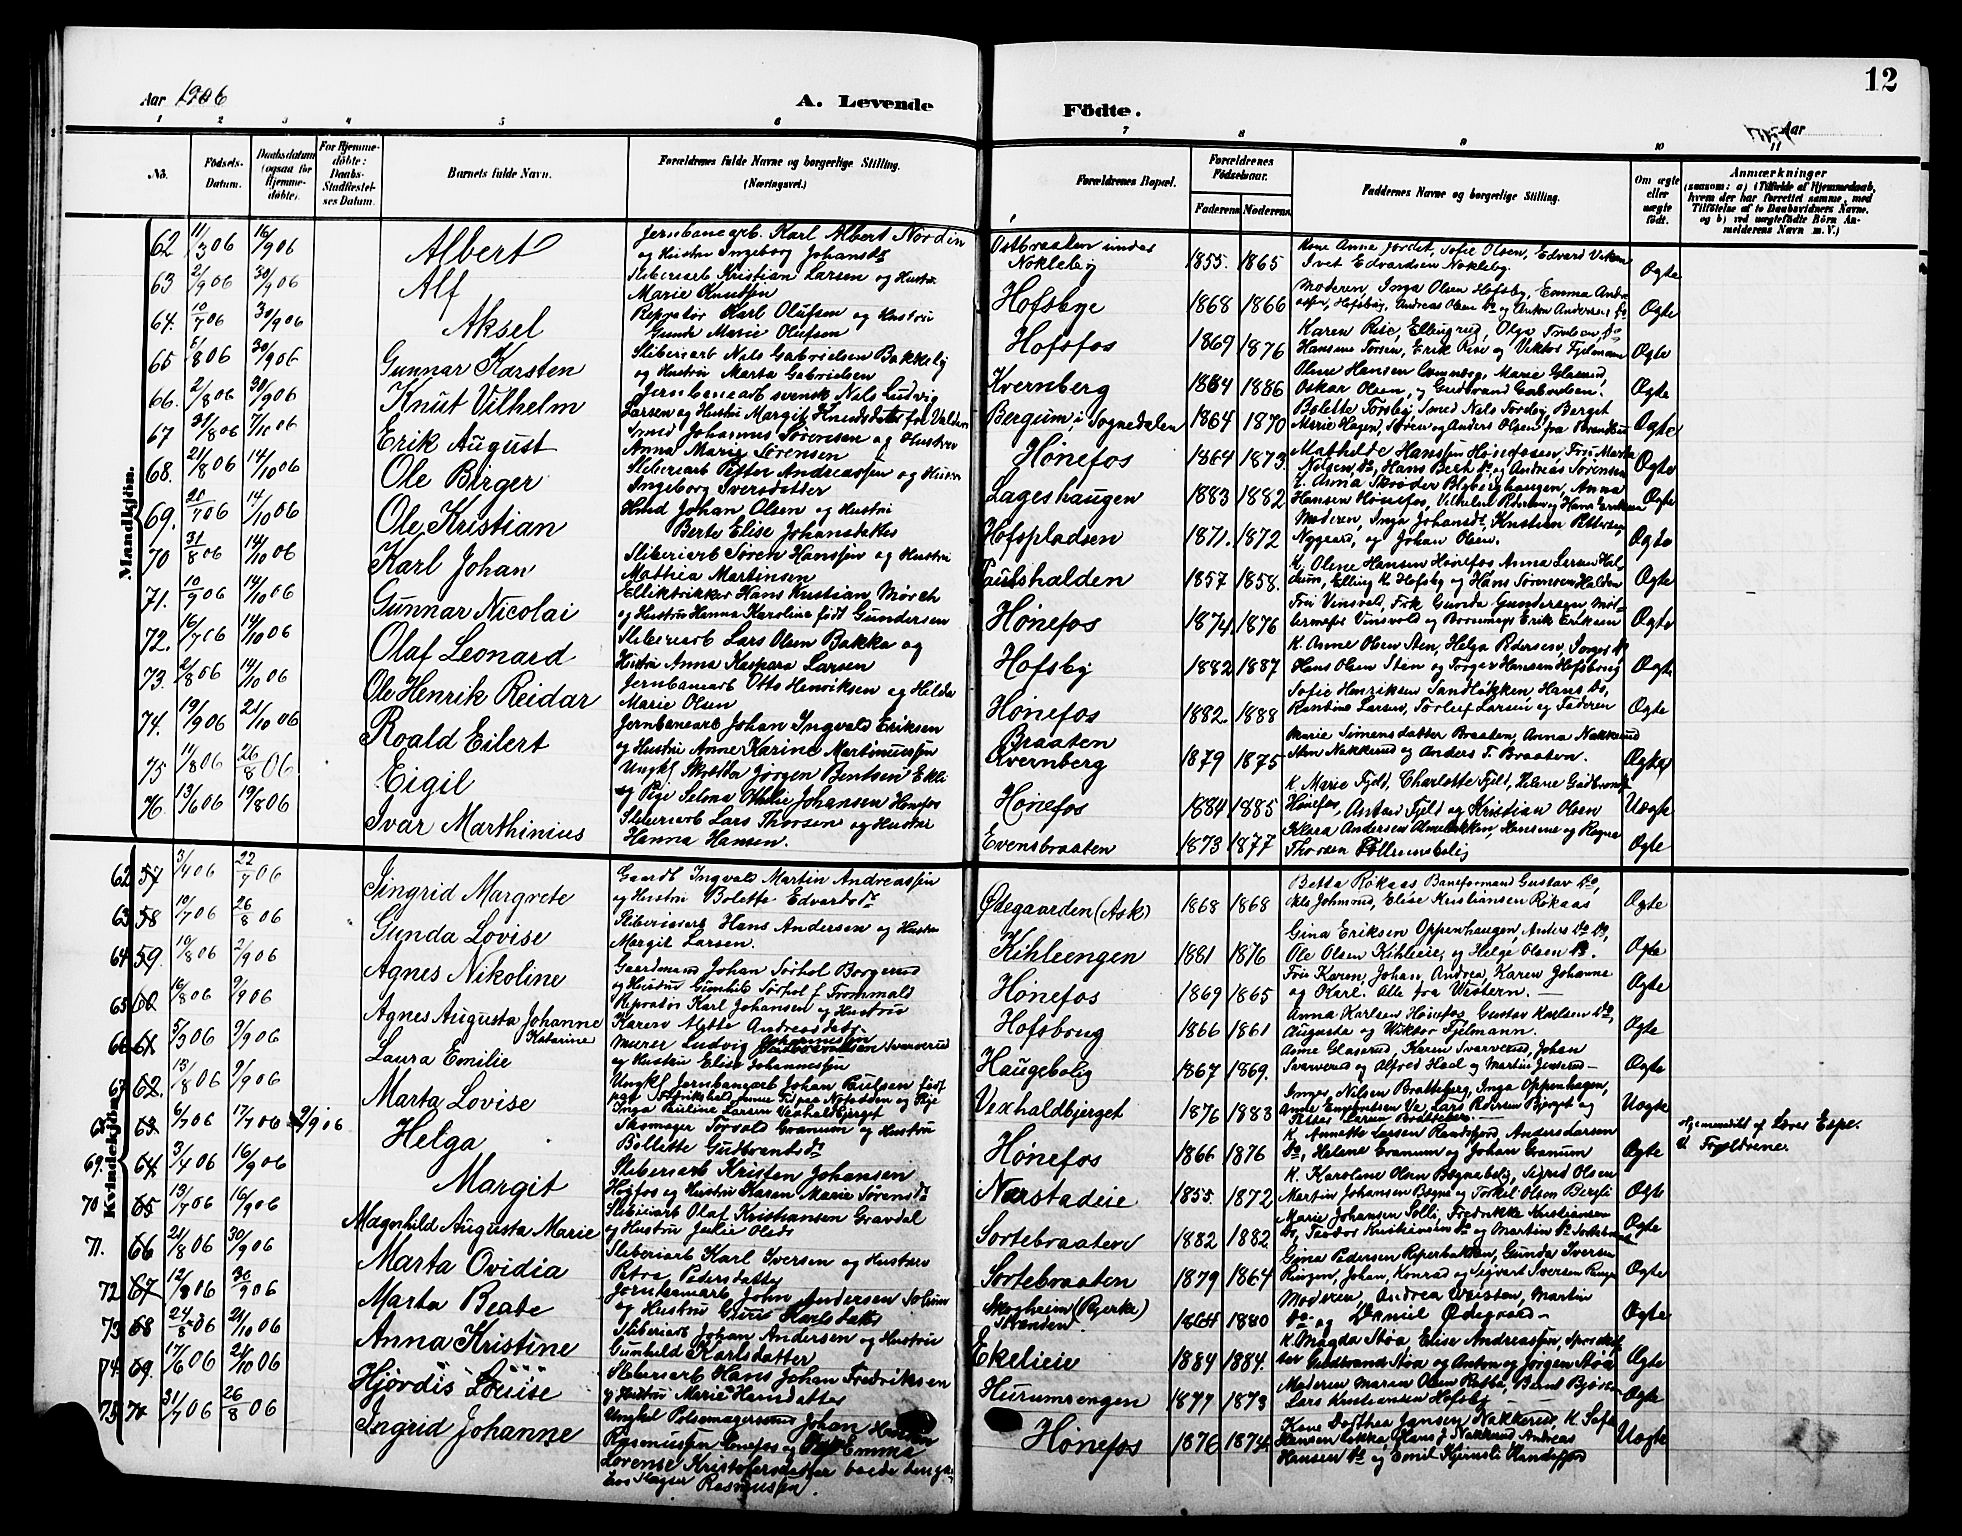 12
Aar 1906
A. Levende
Födte.
Aar
1 2 3 4 5 6 7 8 9 10 11
No.
Födsels-Datum.
Daabsdatum (ogsaa for Hjemmedøbte).
For Hjemmedøbte: Daabs-Stadfæstelses Datum.
Barnets fulde Navn.
Forældrenes fulde Navne og borgerlige Stilling. (Næringsvei.)
Forældrenes Bopæl.
Forældrenes Födselsaar.
Faderens. Moderens.
Faddernes Navne og borgerlige Stilling.
Om ægte eller uægte født.
Anmærkninger
(saasom: a) i Tilfælde af Hjemmedaab, hvem der har forrettet samme, med Tilföielse af to Daabsvidners Navne, og b) ved uægtefødte Börn Anmelderens Navn m. V.)
Mandkjön.
62 11/3 06 16/9 06 Albert Jernbanearb. Karl Albert Nordin og Hustru Ingeborg Johansdt Østbraaten under Nokleby 1855. 1865 Kone Anna Jordet, Sofie Olsen, Edvard Iver Edvardsen Nokleby. Ægte
63 2/9 06 30/9 06 Alf Sliberiarb Kristian Larsen og Hustru Marie Knudsen Hofsbye 1868 1866 Moderen, Inga Olsen Hofsby, Emma Andreasen, Hofsby, Andreas Olsen Do og Anton Andersen Do Ægte
64. 10/7 06 30/9 06 Aksel Repratør Karl Olufsen og Hustru Gunda Marie Olufsen Hofsfos 1869 1876 Karen Rise, Ellingrud, Olga Do Hansine Torsen, Erik Rise og Viktor Fjelmann Ægte
65 6/8 06 30/9 06 Gunnar Karsten Sliberiarb Nils Gabrielsen Bakkeby og Hustru Marta Gabrielsen Kvernberg 1884 1886 Olene Hansen Marie Glaserud, Oskar Olsen, og Gudbrand Gabrielsen. Ægte
66. 2/8 06 30/9 06 Knut Vilhelm Jernbanearb svensk Nils Ludvig Larsen og Hustru Margit Knudsdatt fra Valders Bergum i Sognedalen 1864 1870 Bolette Torsby, Smed Nils Torsby Berget Marie Hagen, Søren og Anders Olsen fra Ægte
67 31/8 06 7/10 06 Erik August Smed Johannes Sørensen og Hustru Anna Marie Sørensen Hønefos 1864 1873. Mathilde Hanssen Hønefossen, Fru Marta Nilsen Do, Hans Do og Andreas Sørensen Ægte
68. 21/8 06 14/10 06 Ole Birger Sliberiarb Petter Andreassen og Hustru Ingeborg Iversdatter Lageshaugen 1883 1882 K. Anna Skrøder Anna Hansen Hønefos, Vilhelm og Hans Ægte
69. 28/7 06 14/10 06 Ole Kristian Smed Johan Olsen og Hustru Berte Elise Johansdatter Hofspladsen 1871. 1872 Moderen, Inga Johansdt, Kristian Pettersen, Nygaard, og Johan Olsen. Ægte
70 31/8 06 14/10 06 Karl Johan Sliberiarb Søren Hanssen og Hustru Mathea Martinsen Taulshalden 1857 1858. K. Olene Hansen Hønefos Anna Larsen Elling K. Hofsby og Hans Sørensen Halden Ægte
71. 10/9 06 14/10 06 Gunnar Nicolai Elliktrikker Hans Kristian Mørch og Hustru Hanna Karoline født Gundersen Hønefos 1874. 1876 Fru Vinsvold, Frk Gunda Gundersen, Vinsvold og Erik Eriksen Ægte
72. 16/7 06 14/10 06 Olaf Leonard Sliberiarb Lars Olsen Bakka og Hustru Anna Kaspara Larsen Hofsby 1882 1887 K. Anne Olsen Sten, Helga Pedersen, Do Hans Olsen Sten og Torger Hansen Hofsbrug Ægte
73. 2/8 06 14/10 06 Ole Henrik Reidar Jernbanearb Otto Henriksen og Hilda Marie Olsen Hønefos 1882. 1888 Sofie Henriksen Sandløkken, Hans Do, Rantine Larsen, Torleif Larsen og Faderen Ægte
74. 19/9 06 21/10 06 Roald Eilert Jernbanearb Johan Ingvald Eriksen og Hustru Anne Karine Martinussen Braaten Qvernberg 1879 1875 Marie Simensdatter Braaten, Anna Nakkerud Sten Nakkerud og Anders T. Braaten. Ægte
75 11/8 06 26/8 06 Eigil Ungkl Skrædder Jørgen Bentsen Ekli og Pige Selma Othilie Johansen Hønefos Hønefos 1884 1885 K. Marie Fjeld, Charlotte Fjeld, Helene Hønefos, Fjeld og Kristian Olsen Uægte
76. 13/6 06 19/8 06 Ivar Marthinius Sliberiarb Lars Thorsen og Hustru Hanna Hansen. Evensbraaten 1873 1877 Klara Andersen Hansine og Ragna Thorsen Ægte
Kvindekjön.
62 57 3/4 06 22/7 06 Singrid Margrete Gaardb Ingvald Martin Andreassen og Hustru Bolette Edvardsdt Ødegaarden (Ask) 1868 1868 Betta Røkaas Baneformand Gustav Do, Elise Kristiansen Røkaas Ægte
63 58 10/7 06 26/8 06 Gunda Lovise Sliberiarb Hans Andersen og Hustru Margit Larsen. Kihleengen 1881 1876 Gina Eriksen Oppenhaugen, Anders Do Do, Ole Olsen Kihleeie, og Helge Olsen Do. Ægte
64 59. 19/8 06 2/9 06 Agnes Nikoline Gaardmand Johan Sørhol Borgerud og Hustru Gunhild Sørhol f. Trommald Hønefos 1869 1865 Fru Karen, Johan, Andrea, Karen Johanne og Karl. Alle fra Vestern. Ægte
65 60 16/8 06 9/9 06 Agnes Augusta Johanne Katarine Repratør Karl Johansen og Hustru Karen Mette Andreasdatr Hofsbrug 1866 1861 Anna Karlsen Hønefos Gustav Karlsen Do, Augusta og Wiktor Fjelmann. Ægte
66 61 5/3 06 9/9 06 Laura Emilie Murer Ludvig Johannessen Svarverud og Hustru Elise Johannessen Haugebolig 1867 1869. Anne Glaserud, Karen Svarverud, Johan Svarverud og Alfred Hael og Martin Jenserud Ægte
67 62. 13/8 06 9/9 06 Marta Lovise Ungkl Jernbanearb Johan Paulsen født paa Fredrikshald og Pige Inga Pauline Larsen Vexhaldbjerget Vexhaldbjerget 1876 1883 Inger Nilsen Bratteberg, Inga Oppenhagen, Anne Lars Pedersen Bjerget og Larsen Bratteberg. Uægte
68 63 6/7 06 17/7 06 9/9 06 Helga Skomager Torvald Granum og Hustru Bollette Gudbrandsdt Hønefos 1866 1876 K. Annette Larsen Randsfjord, Anders Larsen Do, Helene Granum og Johan Granum Ægte Hjemmedøbt af Lærer Espe. V. Forældrene.
69. 64 3/4 06 16/9 06 Margit Sliberiarb Kristen Johansen Høgfos og Hustru Karen Marie Sørensdt Nærstadeie 1855. 1872 K. Karoline Olsen Bægnebolig, Sigrid Olsen Martin Johansen Bægne og Torkel Olsen Bergli Ægte
70 65 19/7 06 16/9 06 Magnhild Augusta Marie Sliberiarb Olaf Kristiansen Gravdal og Hustru Julie Olsdt Sortebraaten 1882 1882 Marie Johansen Solli, Fredrikke Kristiansen Do, Teodor Kristiansen Do og Martin Do Ægte
71. 66 21/8 06 30/9 06 Marta Ovidia Sliberiarb Karl Iversen og Hustru Petra Pedersdatter Sortebraaten 1879 1864 Gina Pedersen Reperbakken, Gunda Iversen Ringen, Johan, Konrad og Sigvart Iversen Ægte
72 67 12/8 06 30/9 06 Marta Beate Jernbanearb John Andersen Solum og Hustru Guri Karlsdatr Skogheim (Bjerke) Stranden 1864 1880 Moderen, Andrea Veisten, Martin Do og Daniel Ødegaard Ægte
73 68 24/8 06 21/10 06 Anna Kristine Sliberiarb Johan Andersen og Hustru Gunhild Karlsdatter Ekelieie 1884 1884. K. Magda Støa, Elise Andreassen, Gudbrand Støa og Anton og Jørgen Støa Ægte
74 69. 17/6 06 21/10 06 Hjørdis Louise Sliberiarb Hans Johan Fredriksen og Hustru Marie Hansdatter Hurumsengen 1877 1873 Moderen Maren Olsen Bernt Lars Kristiansen Hofsby Ægte
75 70 31/7 06 26/8 06 Ingrid Johanne Ungkl Pølsemagersvend Johan Rasmussen Hønefos og Emma Lovense Kristofersdatter Rasmussen. Hønefos 1876 1874. Kone Dorthea Jensen Nakkerud, K. Sofie Hansen Hans J Nakkerud Andreas Hansen Do og Emil Kjernsli Uægte